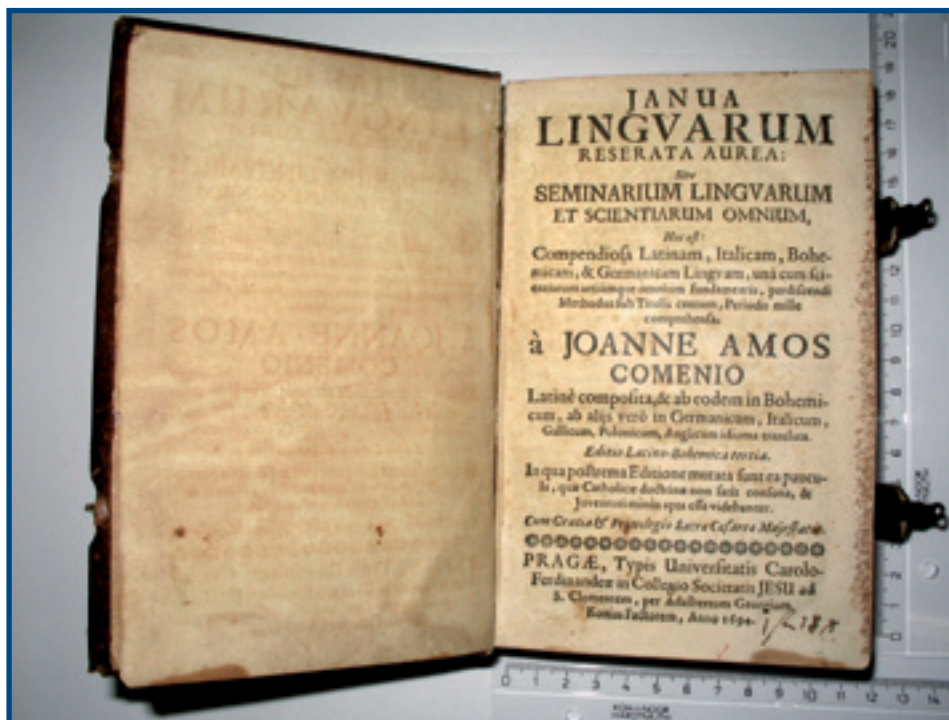 JANUA
LINGVARUM
RESERATA AUREA:
Sive
SEMINARIUM LINGVARUM
ET SCIENTIARUM OMNIUM,
Hoc est:
Compendiosa Latinam, Italicam, Bohe-
micam, & Germanicam Lingvam, unà cum sci-
entiarum artiumque omnium fundamentis, perdiscendi
Methodus sub Titulis centum, Periodis mille
comprehensa.
à JOANNE AMOS
COMENIO
Latinè composita, & ab eodem in Bohemi-
cum, ab alijs verò in Germanicum, Italicum,
Gallicum, Polonicum, Anglicum idioma translata.
Editio Latino-Bohemica tertia.
In qua postrema Editione mutata sunt ea paucu-
la, quæ Catholicæ doctrinæ non satis consona, &
Juventuti minùs apta esse videbantur.
Cum Gratia & Privilegio Sacræ Cæsareæ Majestatis.
PRAGÆ, Typis Universitatis Carolo-
Ferdinandeæ in Collegio Societatis JESU ad
S. Clementem, per Adalbertum Georgium
Factorem, Anno 1694
0 1 2 3 4 5 6 7 8 9 10 11 12 13 14
KOH-I-NOOR
HARDTMUTH